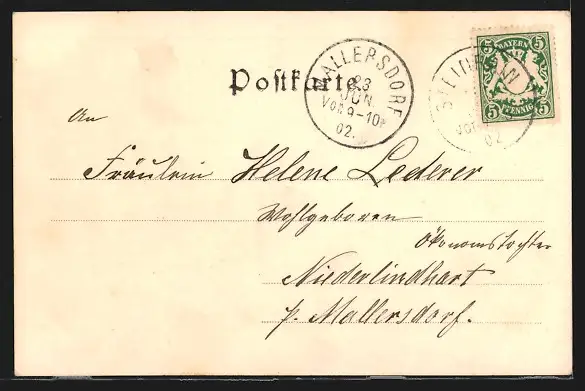 BAYERN
5 5
5 PFENNIG 5
MALLERSDORF
23
JUN
VOR 9-10
02.
Postkarte
An
Fräulein Helene Lederer
Wohlgeboren
Ökonomstochter
Niederlindhart
p. Mallersdorf.